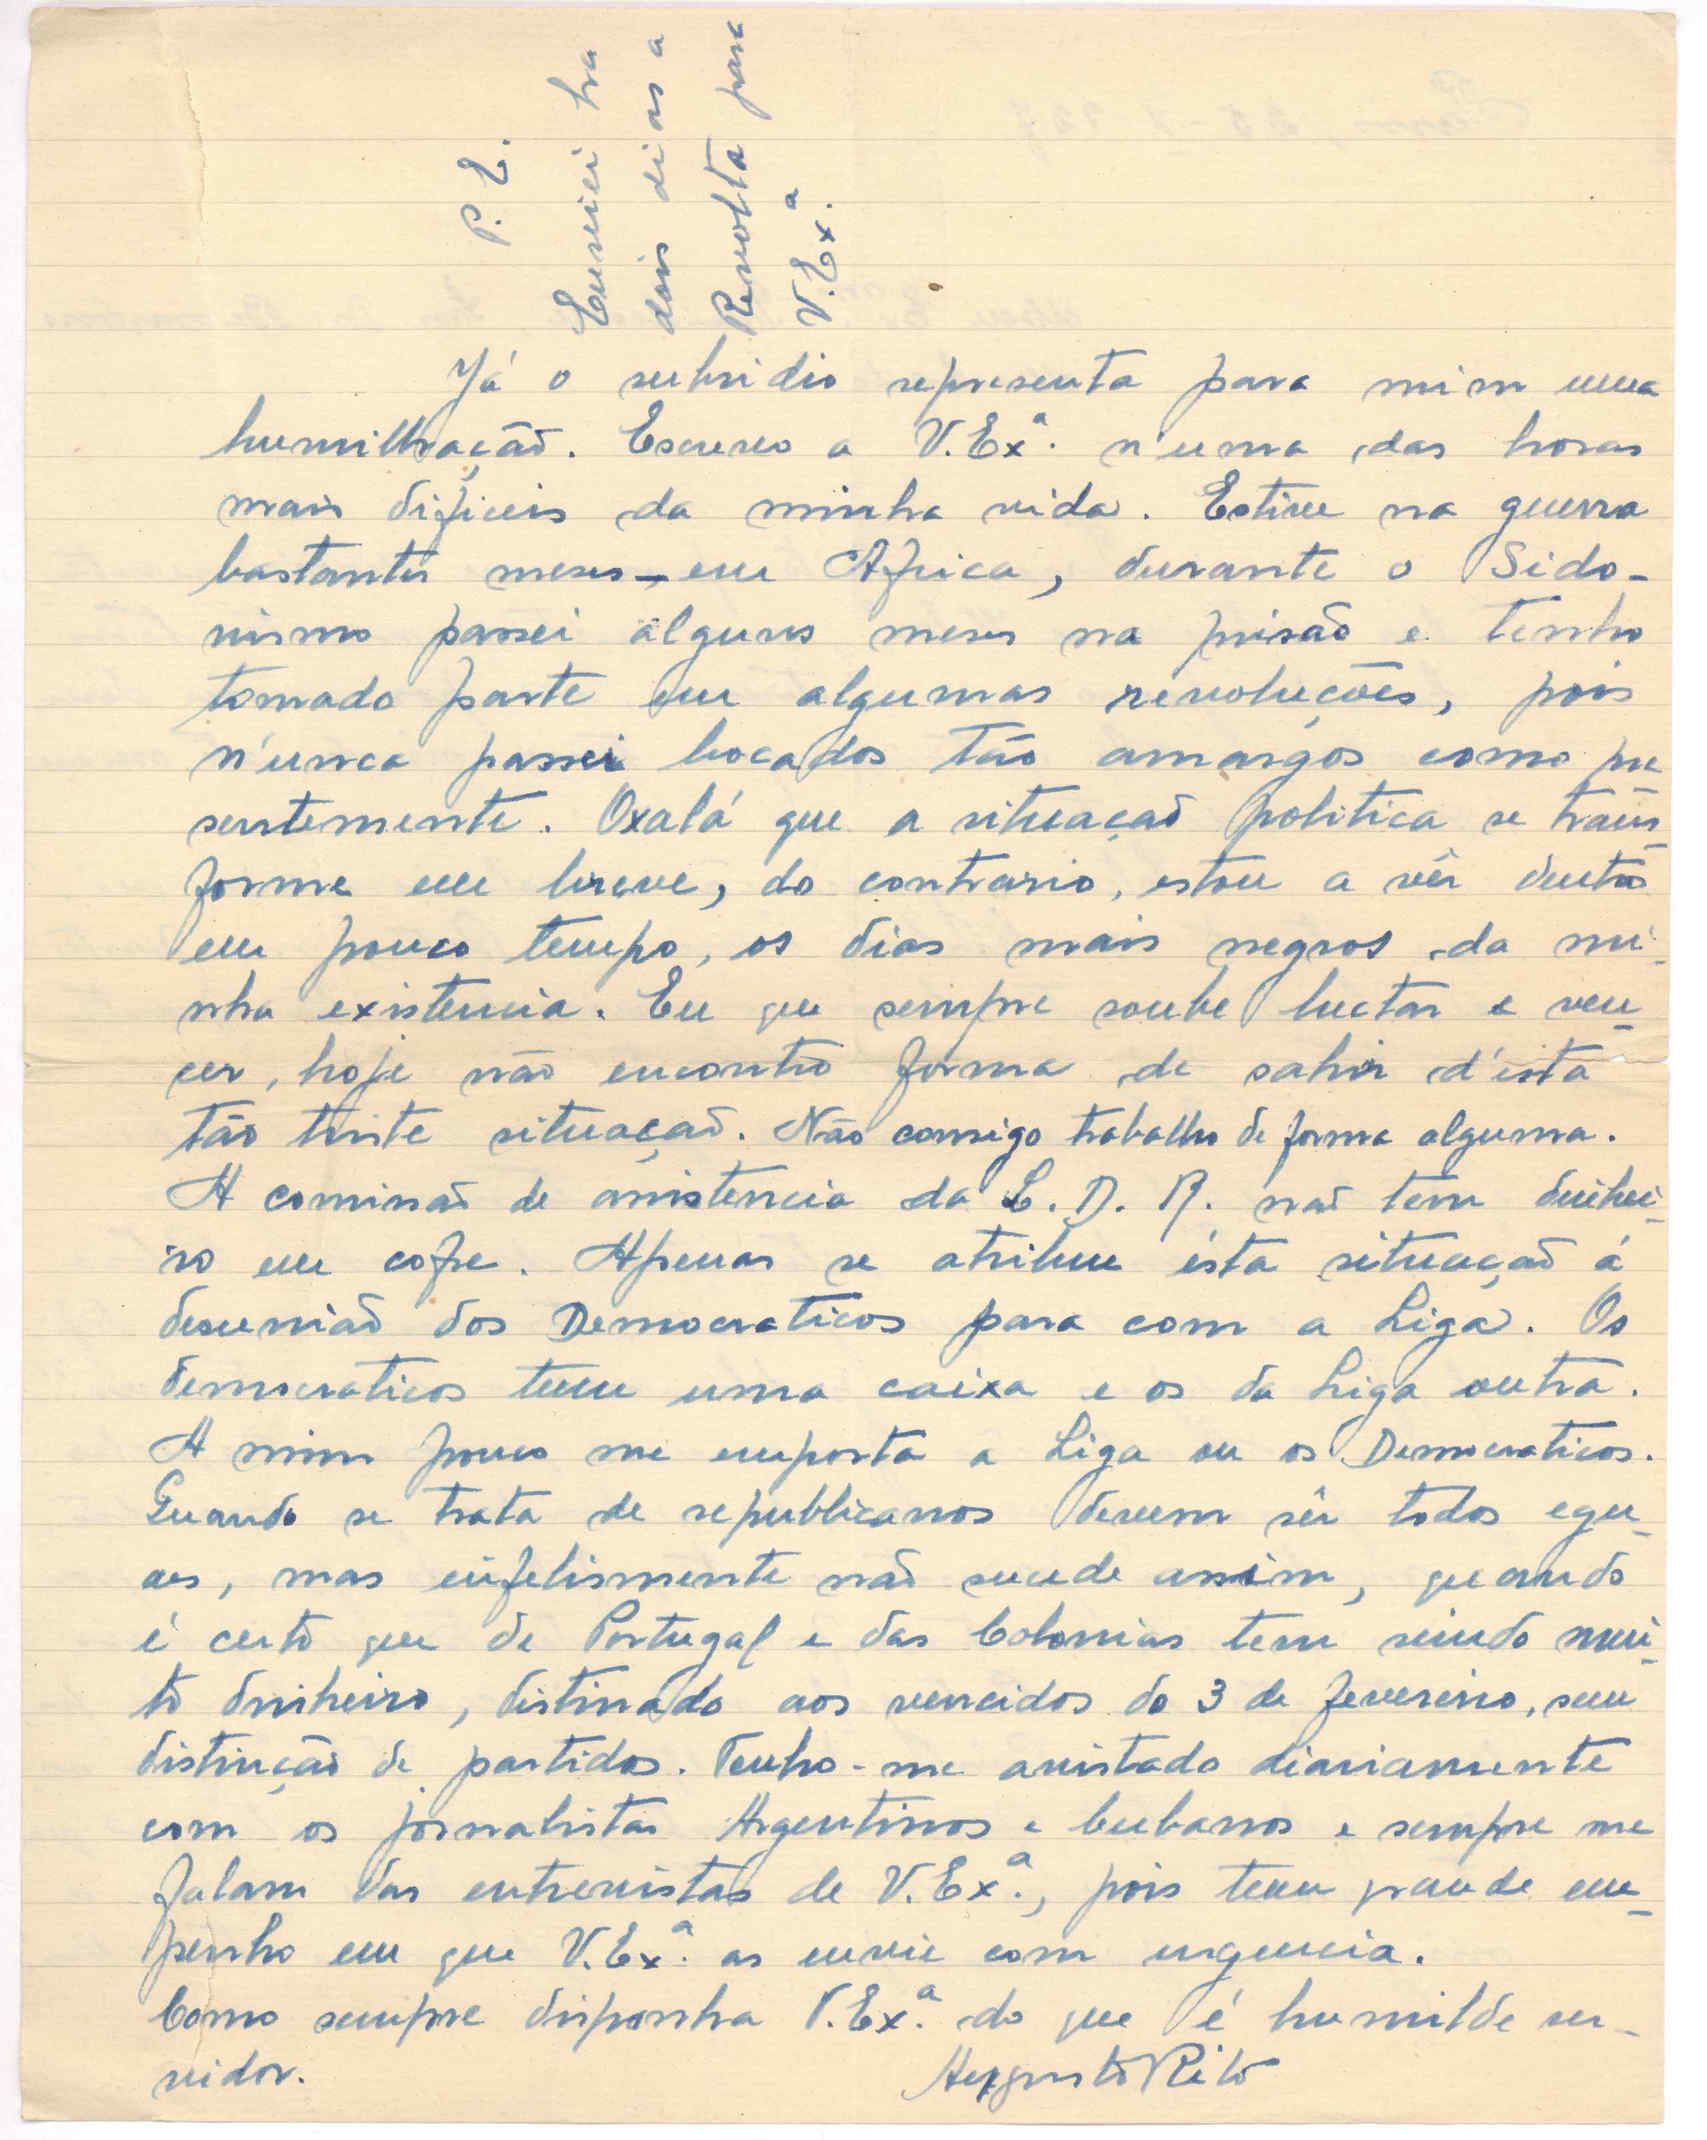 P. E.
Enviei ha
dois dias a
Revolta para
V. Exª.
Já o subsidio representa para mim uma
humilhação. Escrevo a V. Exª. n'uma das horas
mais dificeis da minha vida. Estive na guerra
bastantes meses em Africa, durante o Sido-
nismo passei alguns meses na prisão e tenho
tomado parte em algumas revoluções, pois
n'unca passei bocados tão amargos como pre
sentemente. Oxalá que a situação politica se trans
forme em breve, do contrario, estou a vêr dentro
em pouco tempo, os dias mais negros da mi-
nha existencia. Eu que sempre soube luctar e ven-
cer, hoje não encontro forma de sahir d'esta
tão triste situação. Não consigo trabalho de forma alguma.
A comissão de assistencia da L. D. R. não tem dinhei-
ro em cofre. Apenas se atribue ésta situação á
desunião dos Democraticos para com a Liga. Os
democraticos teem uma caixa e os da Liga outra.
A mim pouco me emporta a Liga ou os Democraticos.
Quando se trata de republicanos devem sêr todos egu-
aes, mas enfelismente não sucede assim, quando
é certo que de Portugal e das Colonias tem vindo mui-
to dinheiro, distinado aos vencidos do 3 de fevereiro, sem
distinção de partidos. Tenho-me avistado diariamente
com os jornalistas Argentinos e Cubanos e sempre me
falam das entrevistas de V. Exª., pois teem grande em-
penho em que V. Exª. as envie com urgencia.
Como sempre disponha V. Exª. do que é humilde ser-
vidor.
Augusto Rito